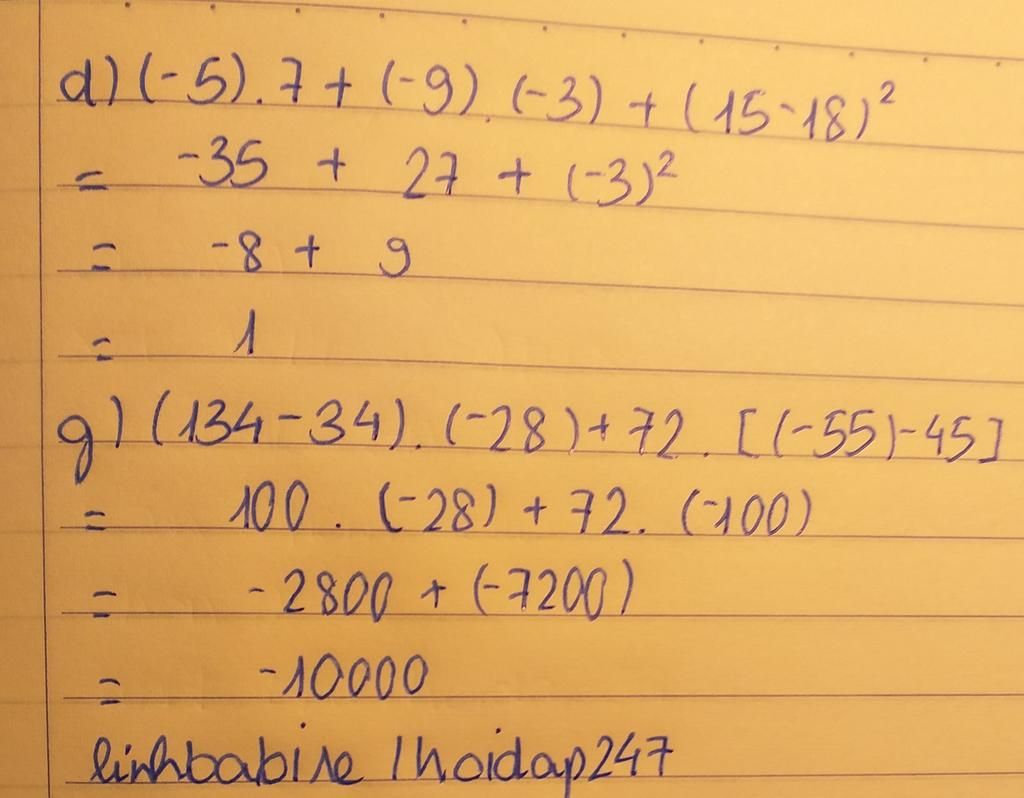 d) (-5).7 + (-9).(-3) + (15-18)²
= -35 + 27 + (-3)²
= -8 + 9
= 1
g) (134-34).(-28)+72.[(-55)-45]
= 100.(-28)+72.(-100)
= -2800+(-7200)
= -10000
linhbabire / hoidap247